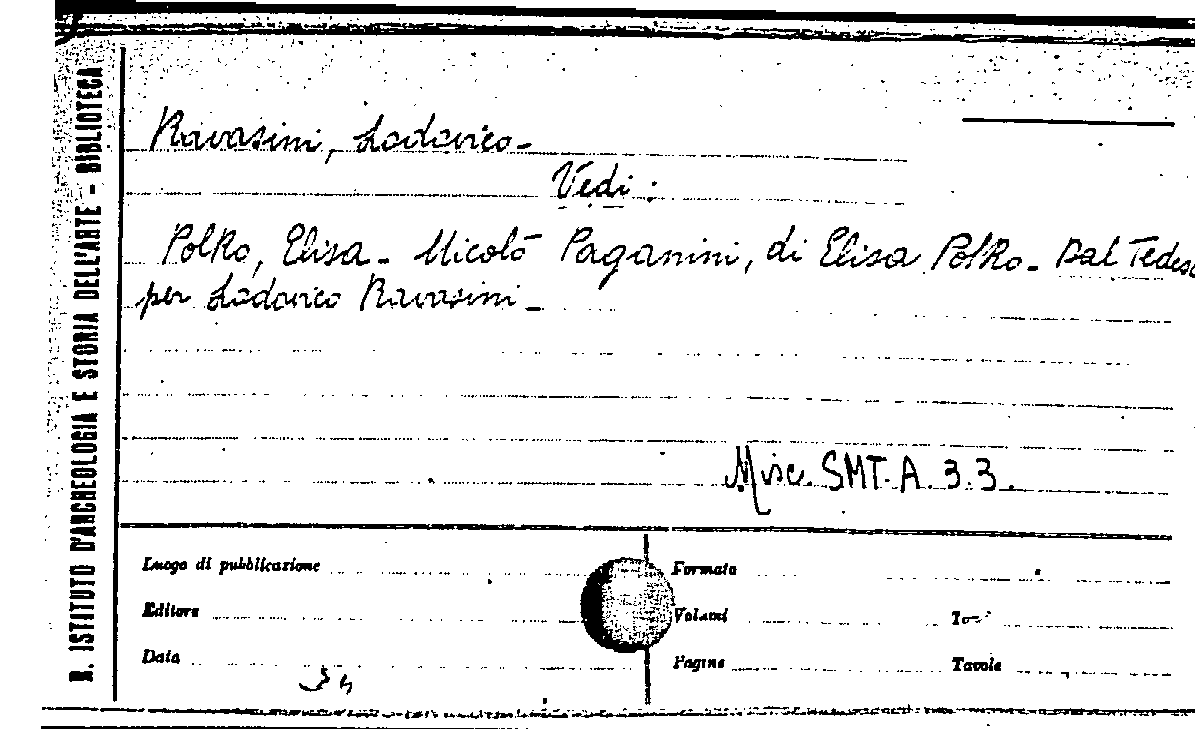 R. ISTITUTO D'ARCHEOLOGIA E STORIA DELL'ARTE - BIBLIOTECA
Ravasini, Lodovico -
Vedi :
Polko, Elisa - Nicolò Paganini, di Elisa Polko - Dal Tedesc
per Lodovico Ravasini -
Misc. SMT. A. 3.3.
Luogo di pubblicazione
Formato
Editore
Volumi
Data
Pagine
Tavole